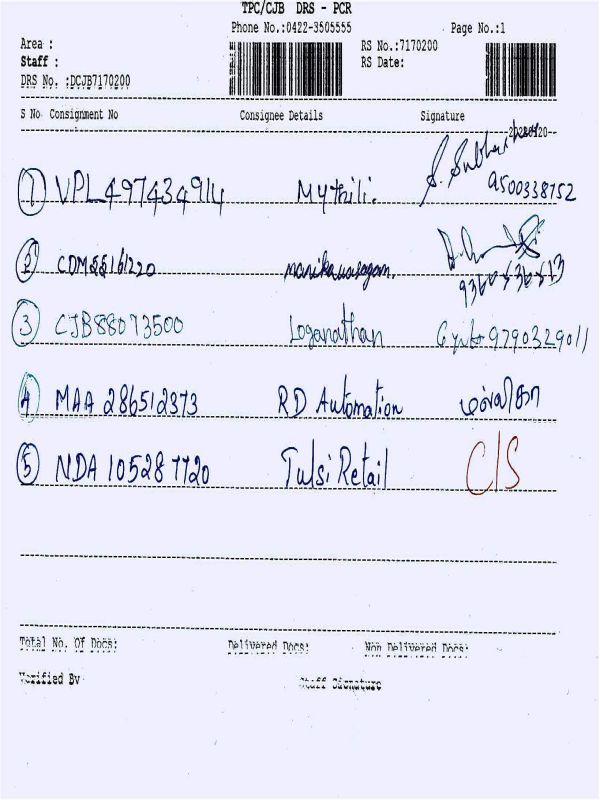 TPC/CJB DRS - PCR
Phone No.:0422-3505555 Page No.:1
Area : RS No.:7170200
Staff : RS Date:
DRS No. :DCJB7170200
S No Consignment No Consignee Details Signature
1 VPL497434914 Mythili. 9500338752
2 manikavasagam.
3 CJB88073500 Loganathan 9790329011
4 MAA 286512373 RD Automation
5 NDA 105287720 Tulsi Retail C/S
Total No. Of Docs: Delivered Docs: Non Delivered Docs:
Verified By Staff Signature